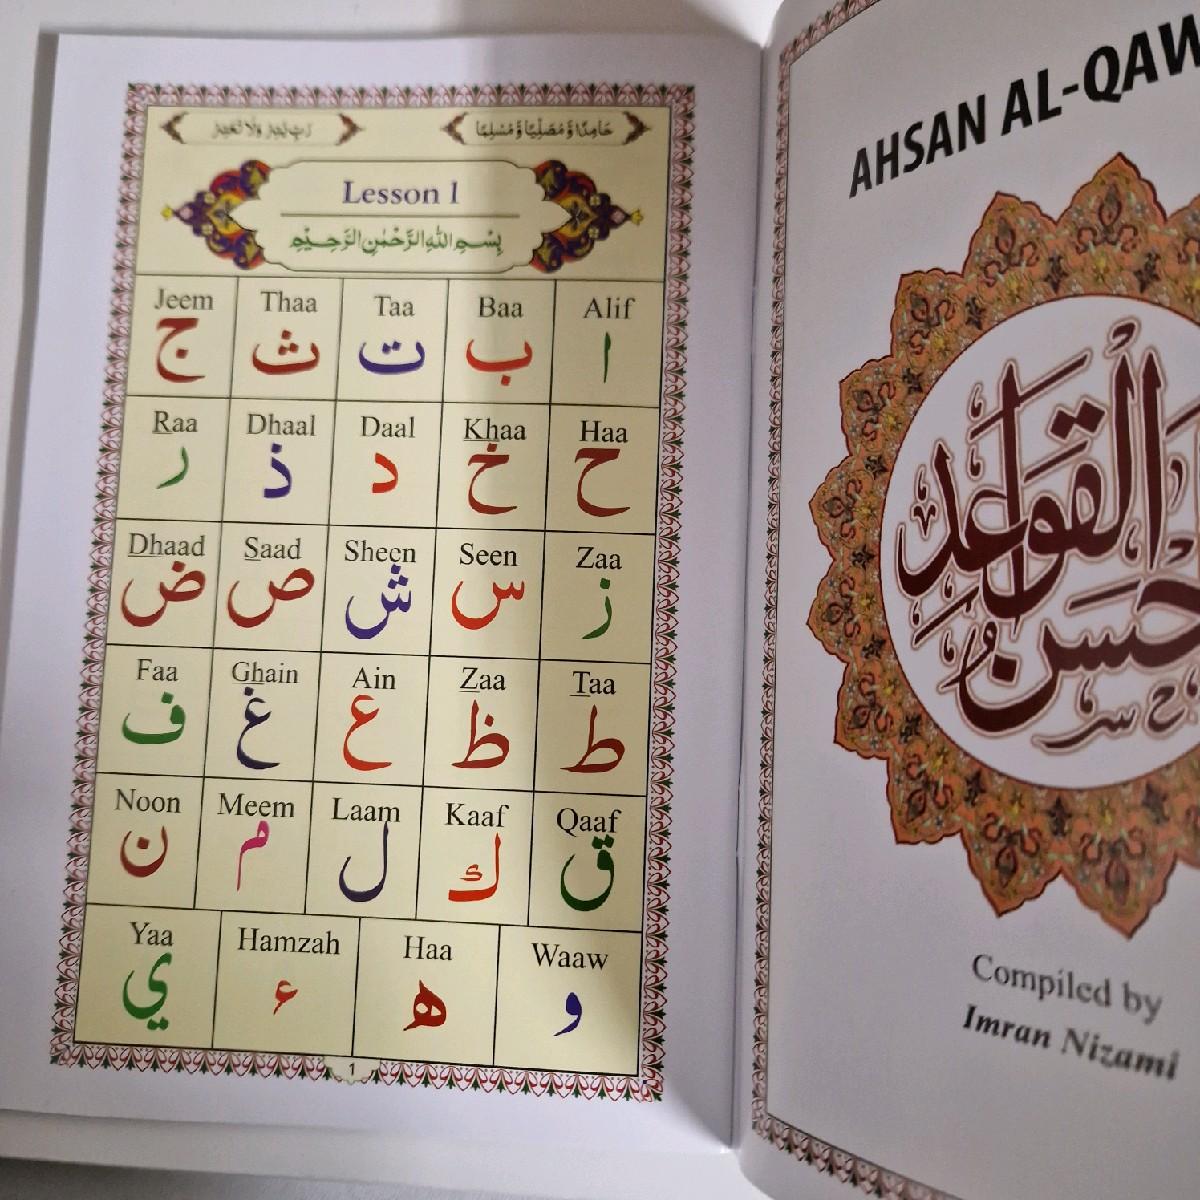 حَامِدًا وَّ مُصَلِّيًا وَّ مُسَلِّمًا
Lesson 1
بِسْمِ اللهِ الرَّحْمٰنِ الرَّحِيْمِ
Alif Baa Taa Thaa Jeem
ا ب ت ث ج
Haa Khaa Daal Dhaal Raa
ح خ د ذ ر
Zaa Seen Sheen Saad Dhaad
ز س ش ص ض
Taa Zaa Ain Ghain Faa
ط ظ ع غ ف
Qaaf Kaaf Laam Meem Noon
ق ك ل م ن
Waaw Haa Hamzah Yaa
و ه ء ي
1
AHSAN AL-QAW
حسن
القواعد
Compiled by
Imran Nizami